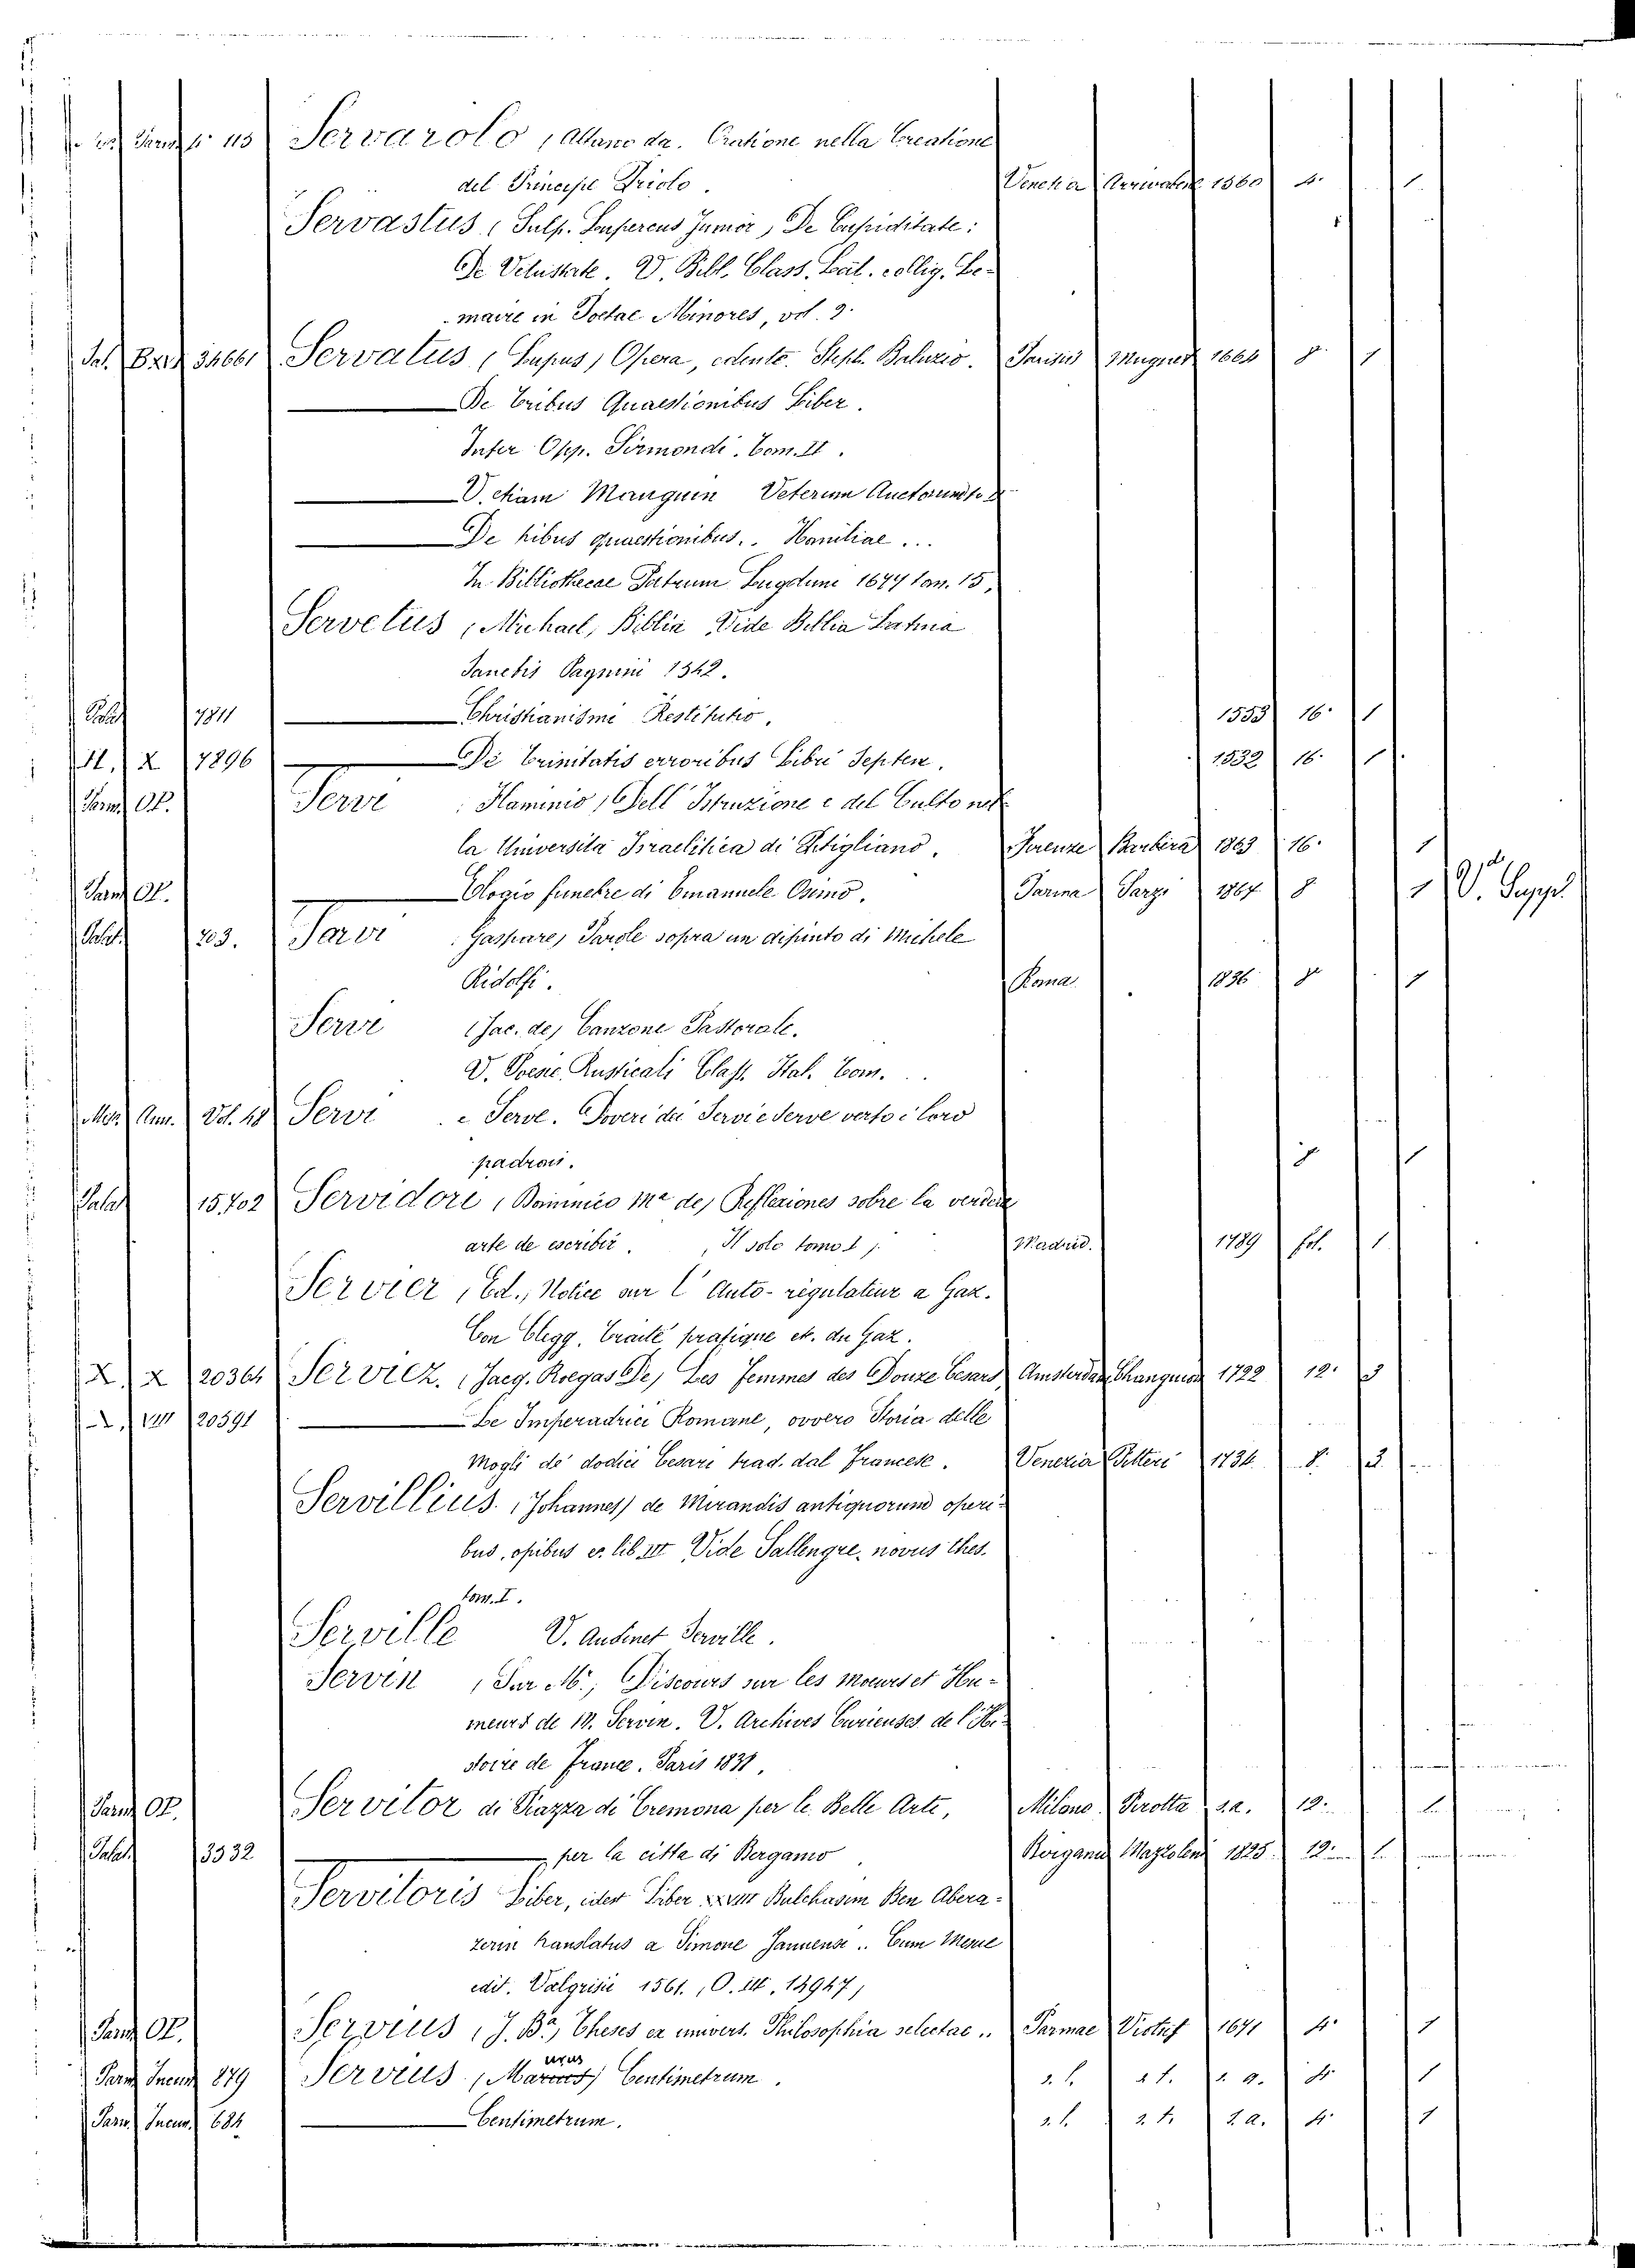 115 Servarolo (Albano da. Oratione nella Creatione
del Principe Priolo. Venetia Arrivabene 1560 4. 1
Servastus (Sulp. Lupercus Junior) De Cupiditate:
De Vetustate. V. Bibl. Class. Lat. collig. Le-
maire in Poetae Minores, vol. 2.
Pal. 34661 Servatus (Lupus) Opera, edente Steph. Baluzio. Parisiis Muguet 1664 8° 1
De tribus Quaestionibus Liber.
Inter Opp. Sirmondi. Tom. II.
V. etiam Mauguin Veterum Auctorum to.
De tribus quaestionibus.. Homiliae...
In Bibliothecae Patrum Lugduni 1677 tom. 15,
Servetus (Michael, Biblia Vide Biblia Latina
Sanctis Pagnini 1542.
Palat 7811 Christianismi Restitutio. 1553 16. 1
II. X 7296 De Trinitatis erroribus Libri Septem. 1532 16. 1
Parm Op. Servi (Flaminio) Dell' Istruzione e del Culto nel
la Università Israelitica di Pitigliano. Firenze Barbera 1863 16. 1
Parm Op. Elogio funebre di Emanuele Osimo. Parma Sarzi 1864 8 1 V. Suppl.
Palat. 203. Servi (Gaspare) Parole sopra un dipinto di Michele
Ridolfi. Roma 1836 8° 1
Servi (Jac. de) Canzone Pastorale.
V. Poesie Rusticali Class. Ital. Tom...
Mor. Ann. Vol. 48 Servi e Serve. Doveri dei Servi e Serve verso i loro
padroni. 8 1
Palat 15702 Servidori (Dominico Mª de) Reflexiones sobre la verdera
arte de escribir. (Il solo tomo 1) Madrid. 1789 fol. 1
Servier (Ed.) Notice sur l'Auto-régulateur a Gaz.
Con Clegg. Traité pratique et. du Gaz.
X. X 20364 Serviez. (Jacq. Roegas De) Les Femmes des Douze Cesars Amsterdam Changuion 1722 12. 3
20591 Le Imperadrici Romane, ovvero Storia delle
Mogli de' dodici Cesari trad. dal Francese. Venezia Pitteri 1734 8. 2
Servillius (Johannes) de Mirandis antiquorum operi-
bus, opibus &. lib. III Vide Sallengre, novus thes.
tom. I.
Serville V. Audinet Serville.
Servin (Sur M., Discours sur les moeurs et Hu-
meurs de M. Servin. V. Archives Curieuses de l'Hi-
stoire de France. Paris 1831,
Parm Op. Servitor di Piazza di Cremona per le Belle Arti, Milano Pirotta s.a. 12. 1
Palat 3332 per la città di Bergamo Bergamo Mazzoleni 1825 12. 1
Servitoris Liber, idest Liber XXVIII Bulchasim Ben Abera-
zerin translatus a Simone Januense.. Cum Mesue
edit. Valgrisii 1561. (O. II. 14947)
Parm Op. Servius (J. Bª) Theses ex univers. Philosophia selectae.. Parmae Viotus 1641 4° 1
urus
Parm Incun 879 Servius (Marius) Centimetrum. s. l. s. t. s. a. 4° 1
Parm Incun 684 Centimetrum. s. l. s. t. s. a. 4° 1